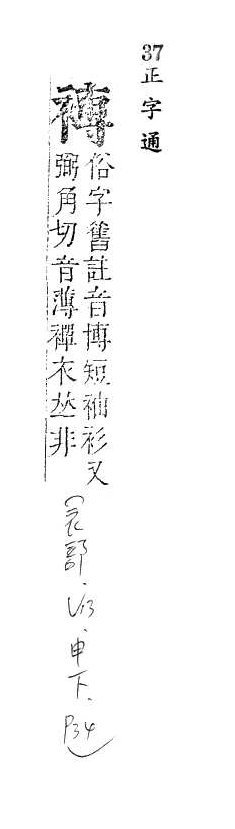 37 正字通
襑
俗字舊註音博短袖衫又
弼角切音薄襌衣𠀤非
(衣部.V13.申下.P34)